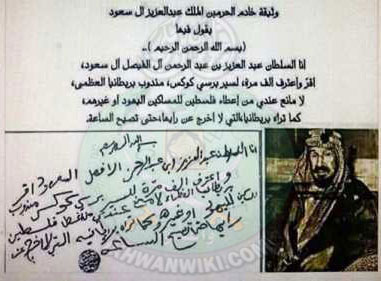 وثيقة خادم الحرمين الملك عبدالعزيز ال سعود
يقول فيها
(بسم الله الرحمن الرحيم )..
انا السلطان عبد العزيز بن عبد الرحمن آل الفيصل آل سعود،
اقرّ واعترف الف مرة، لسير برسي كوكس، مندوب بريطانيا العظمى،
لا مانع عندي من إعطاء فلسطين للمساكين اليهود أو غيرهم،
كما تراه بريطانيا،التي لا اخرج عن رايها،حتى تصيح الساعة.
انا السلطان عبدالعزيز ابن عبدالرحمن الافصل السعود اقر
و اعترف الف مرة للسير برسي كوكس مندوب
بريطانيا العظماء لا مانع عندي فلسطين
لليهود او غيره كما تراه بريطانيه التي لا اخرج عن
رايها حتا تصيح الساعة
AHWANWIKI.COM